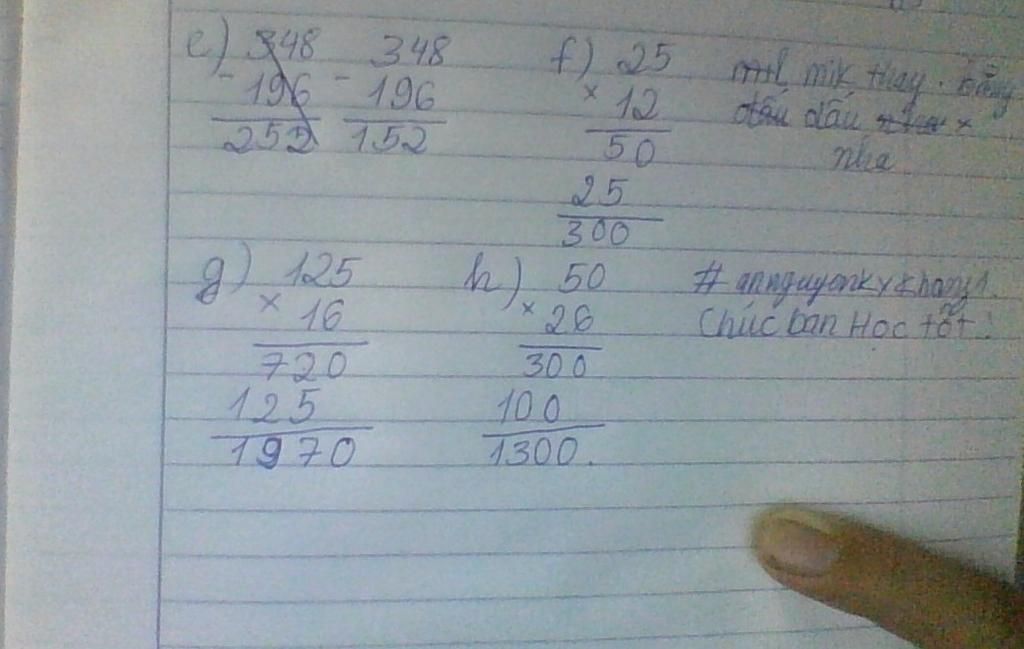 e) 348 348 f) 25 mik thay bằng
- 196 - 196 × 12 dấu dấu ×
252 152 50 nha
25
300
g) 125 h) 50 # annguyenkykhang1.
× 16 × 26 Chúc bạn Học tốt!
720 300
125 100
1970 1300.